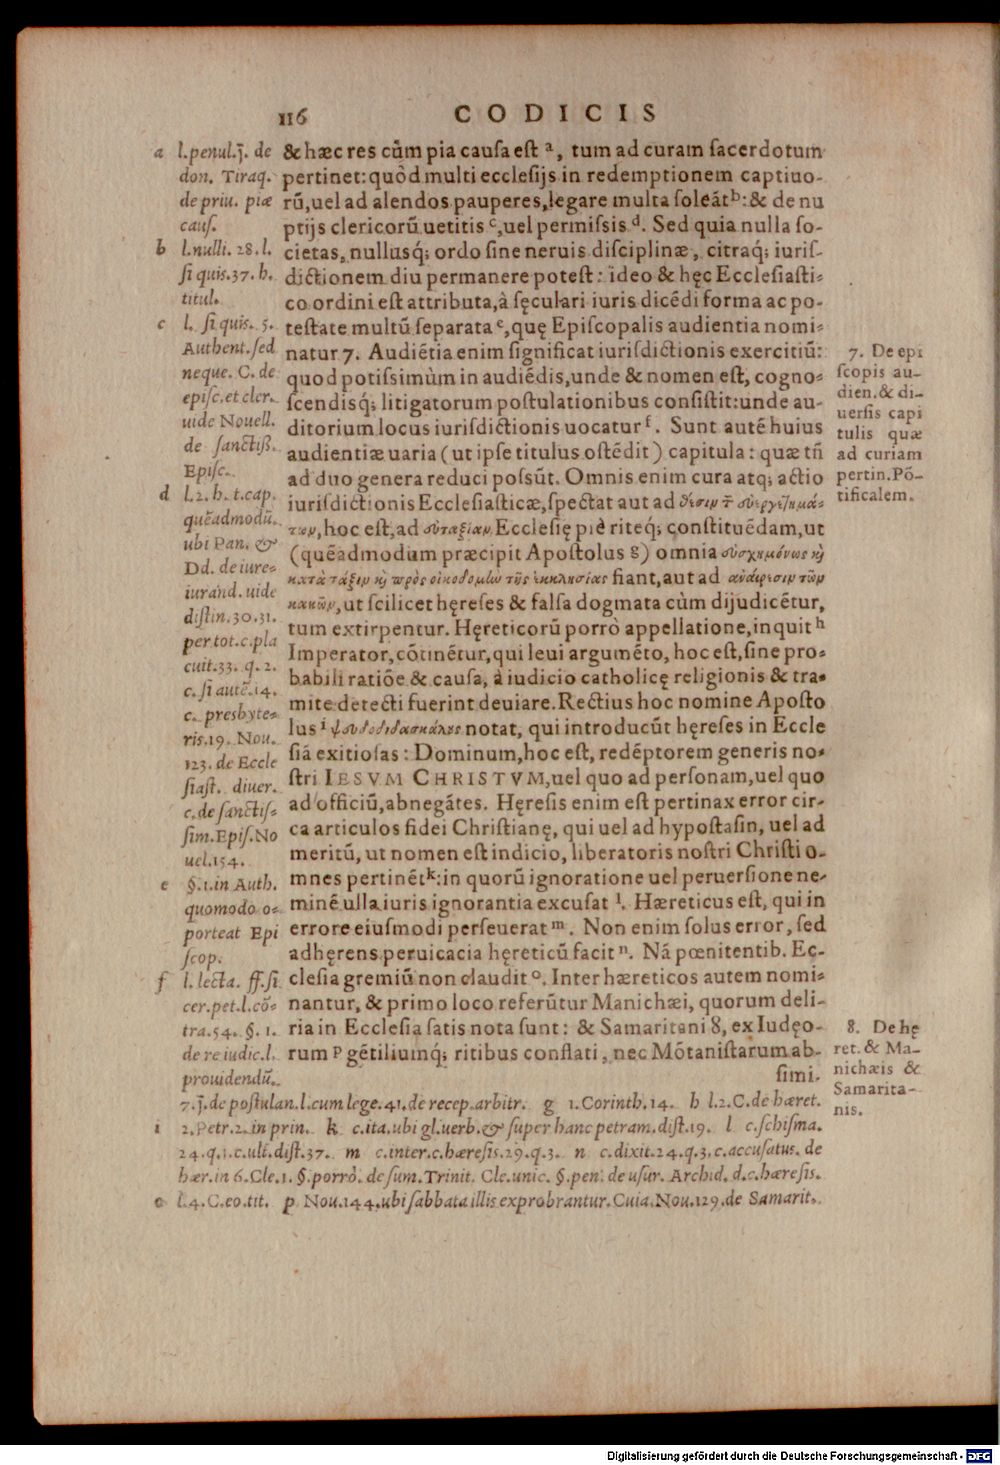 116 CODICIS
& hæc res cùm pia cauſa eſt ᵃ, tum ad curam ſacerdotum
pertinet: quòd multi eccleſijs in redemptionem captiuo-
rũ, uel ad alendos pauperes, legare multa ſoleãt ᵇ: & de nu
ptijs clericorũ uetitis ᶜ, uel permiſsis ᵈ. Sed quia nulla ſo-
cietas, nullusq́; ordo ſine neruis diſciplinæ, citraq́; iuriſ-
dictionem diu permanere poteſt: ideo & hęc Eccleſiaſti-
co ordini eſt attributa, à ſęculari iuris dicẽdi forma ac po-
teſtate multũ ſeparata ᵉ, quę Epiſcopalis audientia nomi-
natur 7. Audiẽtia enim ſignificat iuriſdictionis exercitiũ:
quod potiſsimùm in audiẽdis, unde & nomen eſt, cogno-
ſcendisq́; litigatorum poſtulationibus conſiſtit: unde au-
ditorium locus iuriſdictionis uocatur ᶠ. Sunt autẽ huius
audientiæ uaria (ut ipſe titulus oſtẽdit) capitula: quæ tñ
ad duo genera reduci poſsũt. Omnis enim cura atq́; actio
iuriſdictionis Eccleſiaſticæ, ſpectat aut ad
hoc eſt, ad Eccleſię piè riteq́; conſtituẽdam, ut
(quẽadmodum præcipit Apoſtolus ᵍ) omnia
κατὰ τάξιν καὶ πρὸς οἰκοδομὴν τῆς ἐκκλησίας fiant, aut ad ἀναίρεσιν τῶν
κακῶν, ut ſcilicet hęreſes & falſa dogmata cùm dijudicẽtur,
tum extirpentur. Hęreticorũ porrò appellatione, inquit ʰ
Imperator, cõtinẽtur, qui leui argumẽto, hoc eſt, ſine pro-
babili ratiõe & cauſa, à iudicio catholicę religionis & tra-
mite detecti fuerint deuiare. Rectius hoc nomine Apoſto
lus ⁱ ψευδοδιδασκάλους notat, qui introducũt hęreſes in Eccle
ſiã exitioſas: Dominum, hoc eſt, redẽptorem generis no-
ſtri IESVM CHRISTVM, uel quo ad perſonam, uel quo
ad officiũ, abnegãtes. Hęreſis enim eſt pertinax error cir-
ca articulos fidei Chriſtianę, qui uel ad hypoſtaſin, uel ad
meritũ, ut nomen eſt indicio, liberatoris noſtri Chriſti o-
mnes pertinẽt ᵏ: in quorũ ignoratione uel peruerſione ne-
minẽ ulla iuris ignorantia excuſat ˡ. Hæreticus eſt, qui in
errore eiuſmodi perſeuerat ᵐ. Non enim ſolus error, ſed
adhęrens peruicacia hęreticũ facit ⁿ. Nã pœnitentib. Ec-
cleſia gremiũ non claudit ᵒ. Inter hæreticos autem nomi-
nantur, & primo loco referũtur Manichæi, quorum deli-
ria in Eccleſia ſatis nota ſunt: & Samaritani 8, ex Iudęo-
rum ᵖ gẽtiliumq́; ritibus conflati, nec Mõtaniſtarum ab-
ſimi.
a l. penul. j. de
don. Tiraq.
de priu. piæ
cauſ.
b l. nulli. 28. l.
ſi quis. 37. h.
titul.
c l. ſi quis. 5.
Authent. ſed
neque. C. de
epiſc. et cler.
uide Nouell.
de ſanctiß.
Epiſc.
d l. 2. h. t. cap.
quẽadmodũ.
ubi Pan. &
Dd. de iure-
iurand. uide
diſtin. 30. 31.
per tot. c. pla
cuit. 33. q. 2.
c. ſi autẽ. 14.
c. presbyte-
ris. 19. Nou.
123. de Eccle
ſiaſt. diuer.
c. de ſanctiſ-
ſim. Epiſ. No
uel. 154.
e §. 1. in Auth.
quomodo o-
porteat Epi
ſcop.
f l. lecta. ff. ſi
cer. pet. l. cõ-
tra. 54. §. 1.
de re iudic. l.
prouidendũ.
7. j. de poſtulan. l. cum lege. 41. de recep. arbitr. g 1. Corinth. 14. h l. 2. C. de hæret.
i 2. Petr. 2. in prin. k c. ita. ubi gl. uerb. & ſuper hanc petram. diſt. 19. l c. ſchiſma.
24. q. 1. c. ult. diſt. 37. m c. inter. c. hæreſis. 29. q. 3. n c. dixit. 24. q. 3. c. accuſatus. de
hær. in 6. Cle. 1. §. porrò. de ſum. Trinit. Cle. unic. §. pen. de uſur. Archid. d. c. hæreſis.
o l. 4. C. eo. tit. p Nou. 144. ubi ſabbata illis exprobrantur. Cuia. Nou. 129. de Samarit.
7. De epi
ſcopis au-
dien. & di-
uerſis capi
tulis quæ
ad curiam
pertin. Põ-
tificalem.
8. De hę
ret. & Ma-
nichæis &
Samarita-
nis.
Digitalisierung gefördert durch die Deutsche Forschungsgemeinschaft - DFG